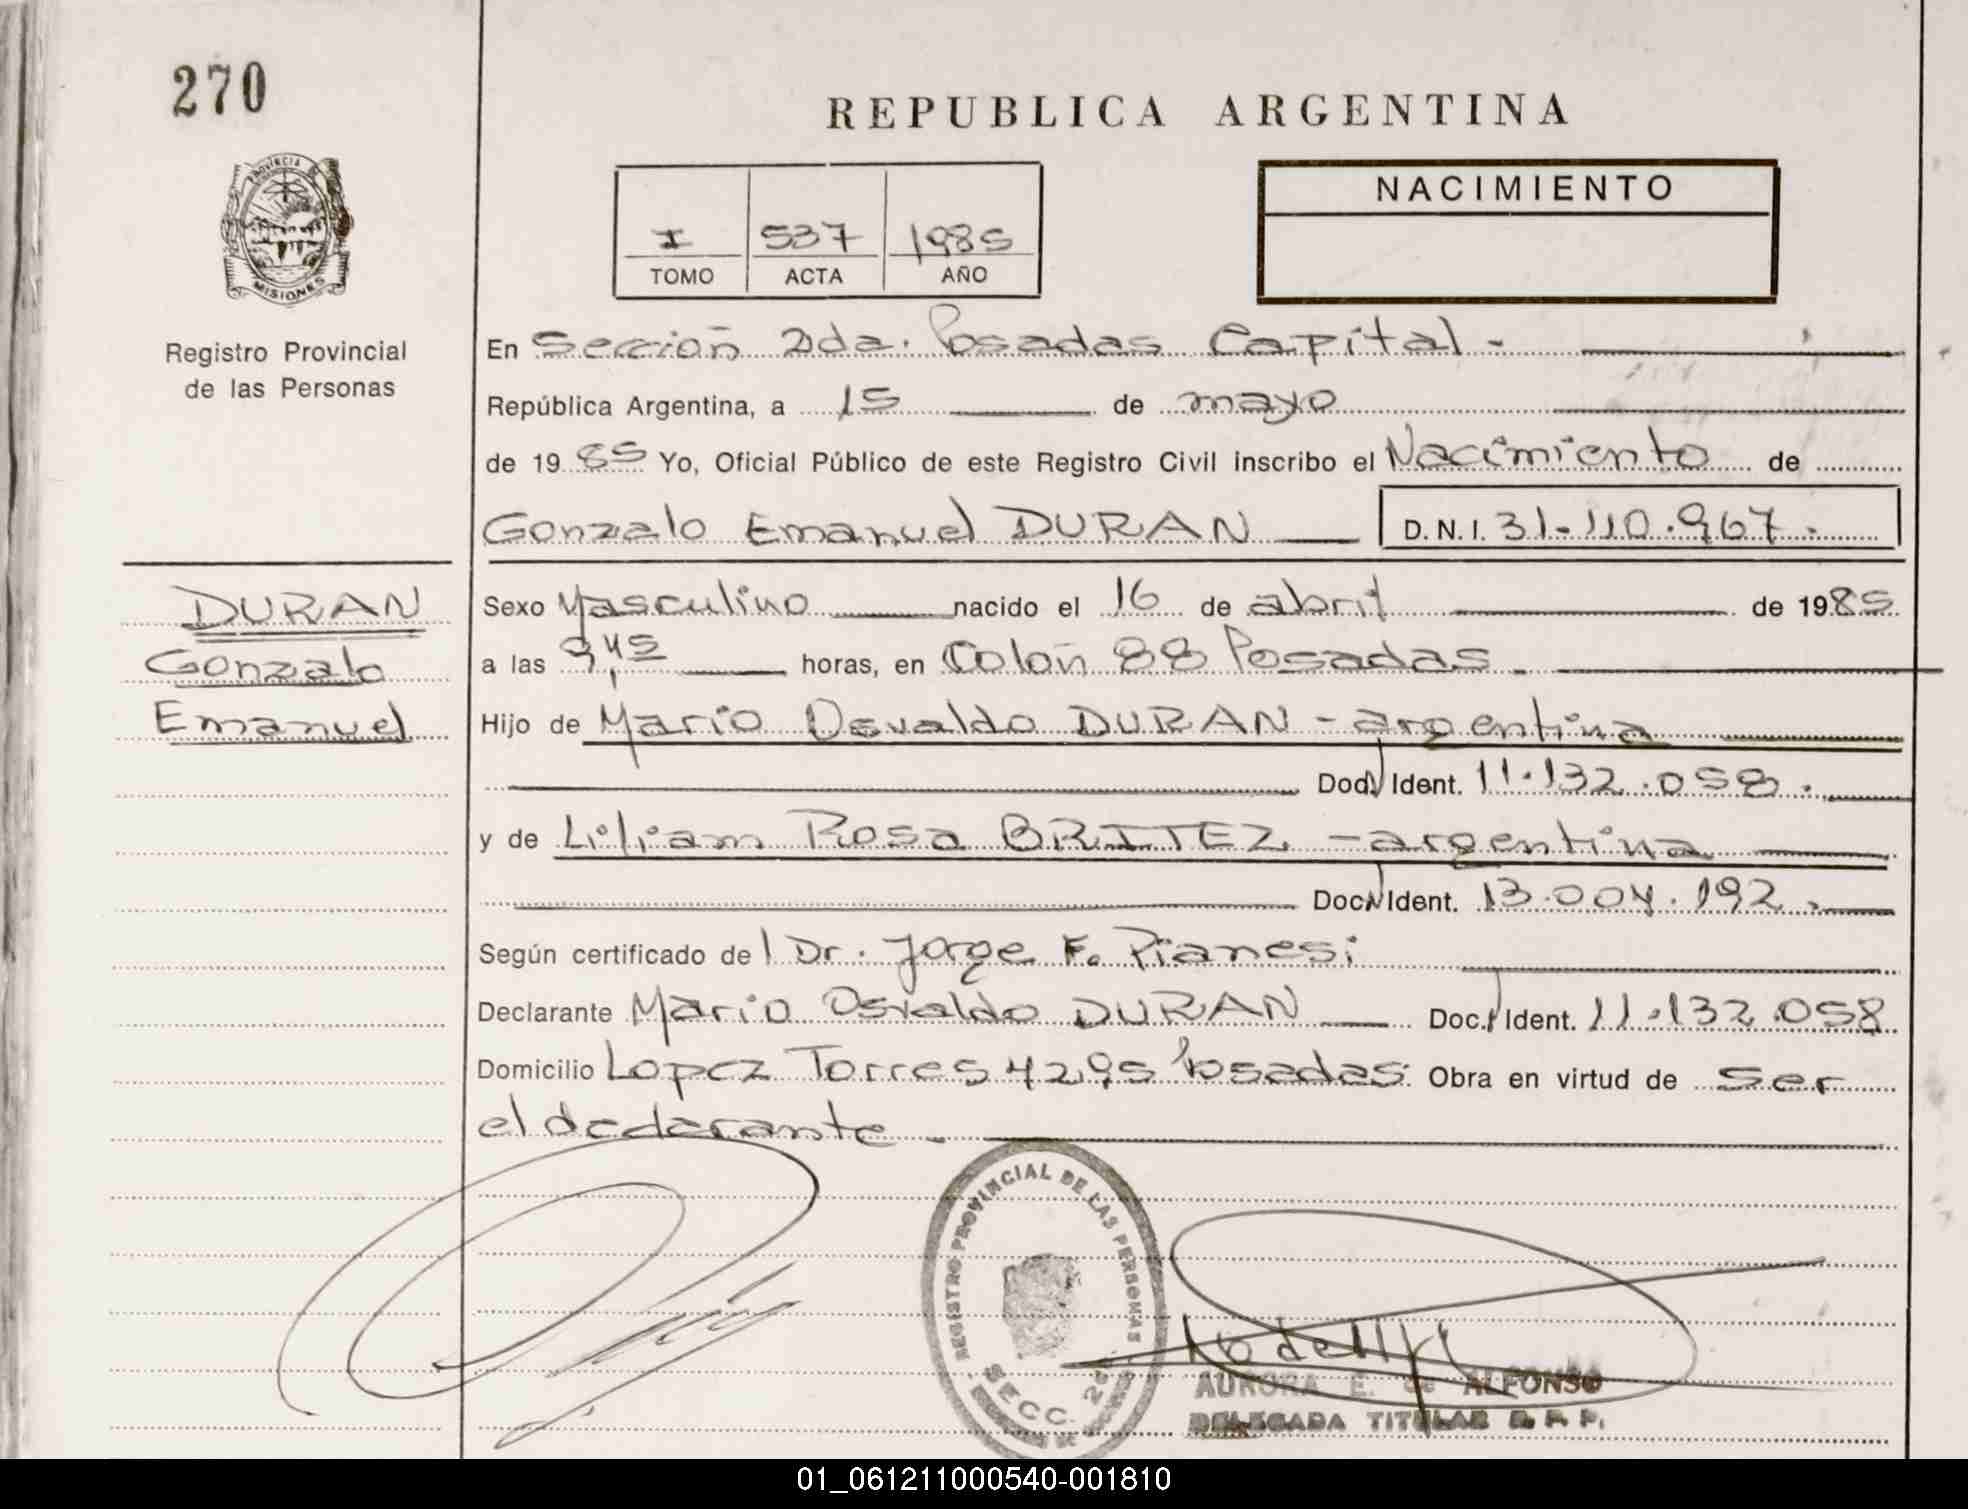 270
REPUBLICA ARGENTINA
PROVINCIA DE
MISIONES
Registro Provincial
de las Personas
I 537 1985
TOMO ACTA AÑO
NACIMIENTO
En Sección 2da. Posadas Capital -
República Argentina, a 15 de mayo
de 1985 Yo, Oficial Público de este Registro Civil inscribo el Nacimiento de
Gonzalo Emanuel DURAN D.N.I. 31-110.967.
DURAN
Gonzalo
Emanuel
Sexo Masculino nacido el 16 de abril de 1985
a las 9,45 horas, en Colón 88 Posadas.
Hijo de Mario Osvaldo DURAN - argentina
Doc. Ident. 11.132.058.
y de Liliam Rosa BRITEZ - argentina
Doc. Ident. 13.004.192.
Según certificado del Dr. Jorge F. Pianesi
Declarante Mario Osvaldo DURAN Doc. Ident. 11.132.058
Domicilio Lopez Torres 4295 Posadas. Obra en virtud de ser
el declarante.
REGISTRO PROVINCIAL DE LAS PERSONAS
SECC. 2a
AURORA E. de ALFONSO
DELEGADA TITULAR R. P. P.
01_061211000540-001810